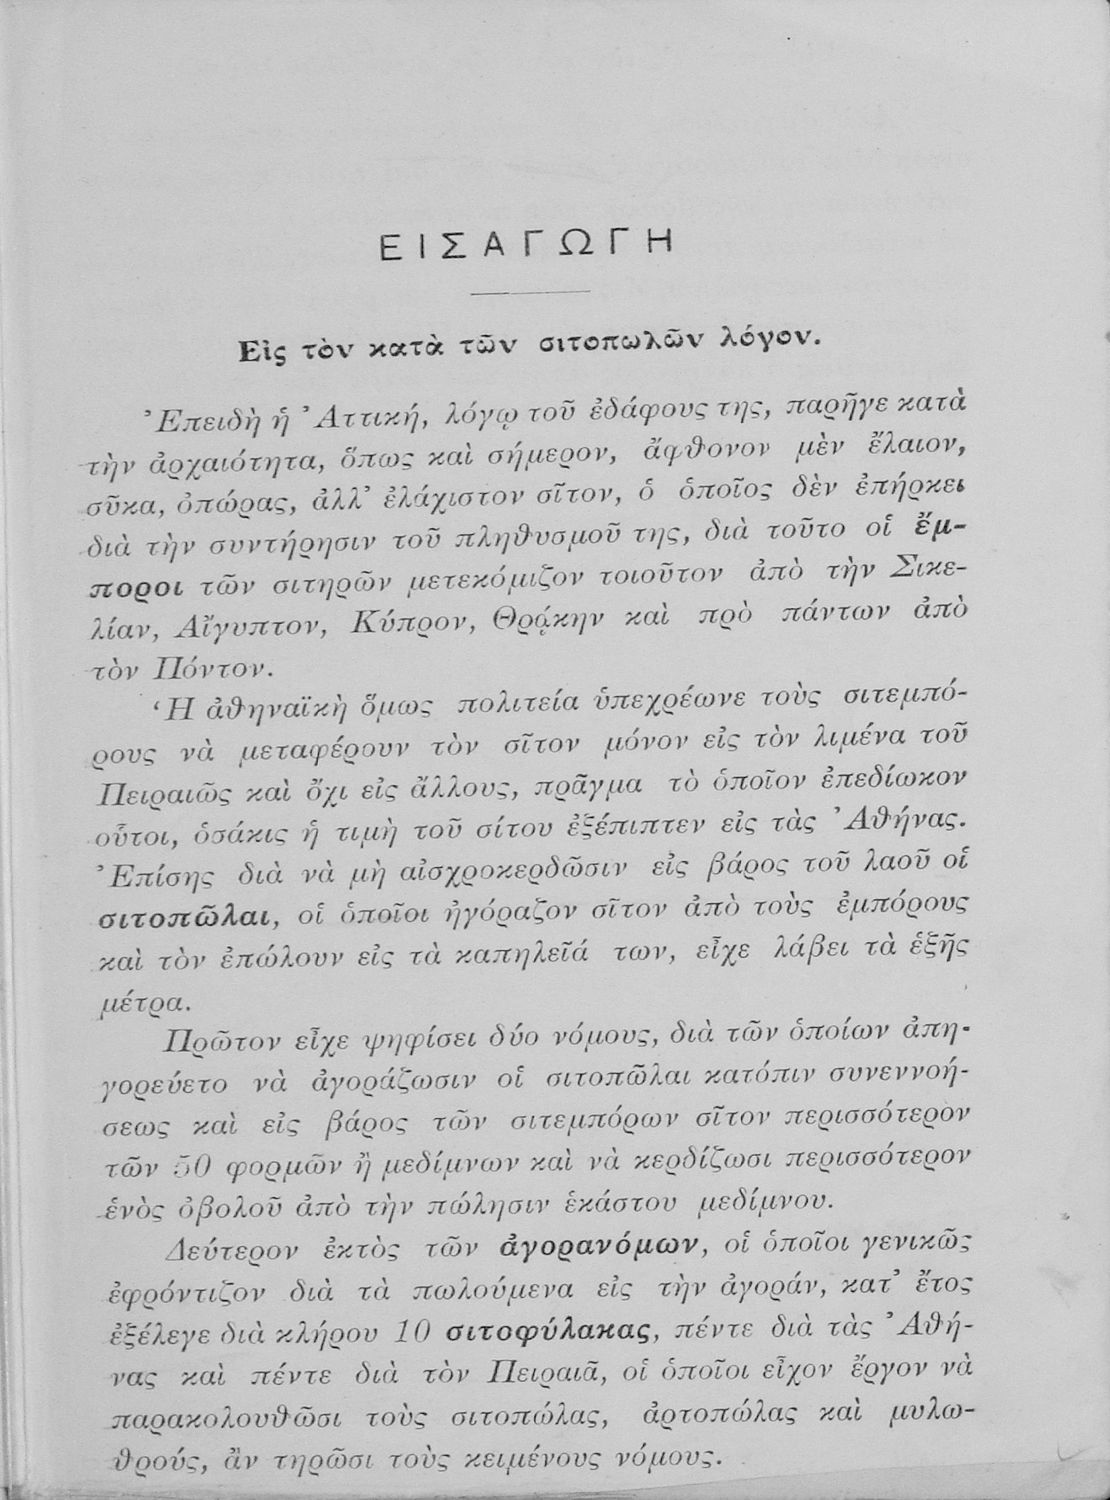 ΕΙΣΑΓΩΓΗ
Εἰς τὸν κατὰ τῶν σιτοπωλῶν λόγον.
Ἐπειδὴ ἡ Ἀττική, λόγῳ τοῦ ἐδάφους της, παρῆγε κατὰ
τὴν ἀρχαιότητα, ὅπως καὶ σήμερον, ἄφθονον μὲν ἔλαιον,
σῦκα, ὀπώρας, ἀλλ' ἐλάχιστον σῖτον, ὁ ὁποῖος δὲν ἐπήρκει
διὰ τὴν συντήρησιν τοῦ πληθυσμοῦ της, διὰ τοῦτο οἱ ἔμ-
ποροι τῶν σιτηρῶν μετεκόμιζον τοιοῦτον ἀπὸ τὴν Σικε-
λίαν, Αἴγυπτον, Κύπρον, Θρᾴκην καὶ πρὸ πάντων ἀπὸ
τὸν Πόντον.
Ἡ ἀθηναϊκὴ ὅμως πολιτεία ὑπεχρέωνε τοὺς σιτεμπό-
ρους νὰ μεταφέρουν τὸν σῖτον μόνον εἰς τὸν λιμένα τοῦ
Πειραιῶς καὶ ὄχι εἰς ἄλλους, πρᾶγμα τὸ ὁποῖον ἐπεδίωκον
οὗτοι, ὁσάκις ἡ τιμὴ τοῦ σίτου ἐξέπιπτεν εἰς τὰς Ἀθήνας.
Ἐπίσης διὰ νὰ μὴ αἰσχροκερδῶσιν εἰς βάρος τοῦ λαοῦ οἱ
σιτοπῶλαι, οἱ ὁποῖοι ἠγόραζον σῖτον ἀπὸ τοὺς ἐμπόρους
καὶ τὸν ἐπώλουν εἰς τὰ καπηλεῖά των, εἶχε λάβει τὰ ἑξῆς
μέτρα.
Πρῶτον εἶχε ψηφίσει δύο νόμους, διὰ τῶν ὁποίων ἀπη-
γορεύετο νὰ ἀγοράζωσιν οἱ σιτοπῶλαι κατόπιν συνεννοή-
σεως καὶ εἰς βάρος τῶν σιτεμπόρων σῖτον περισσότερον
τῶν 50 φορμῶν ἢ μεδίμνων καὶ νὰ κερδίζωσι περισσότερον
ἑνὸς ὀβολοῦ ἀπὸ τὴν πώλησιν ἑκάστου μεδίμνου.
Δεύτερον ἐκτὸς τῶν ἀγορανόμων, οἱ ὁποῖοι γενικῶς
ἐφρόντιζον διὰ τὰ πωλούμενα εἰς τὴν ἀγοράν, κατ' ἔτος
ἐξέλεγε διὰ κλήρου 10 σιτοφύλακας, πέντε διὰ τὰς Ἀθή-
νας καὶ πέντε διὰ τὸν Πειραιᾶ, οἱ ὁποῖοι εἶχον ἔργον νὰ
παρακολουθῶσι τοὺς σιτοπώλας, ἀρτοπώλας καὶ μυλω-
θρούς, ἂν τηρῶσι τοὺς κειμένους νόμους.